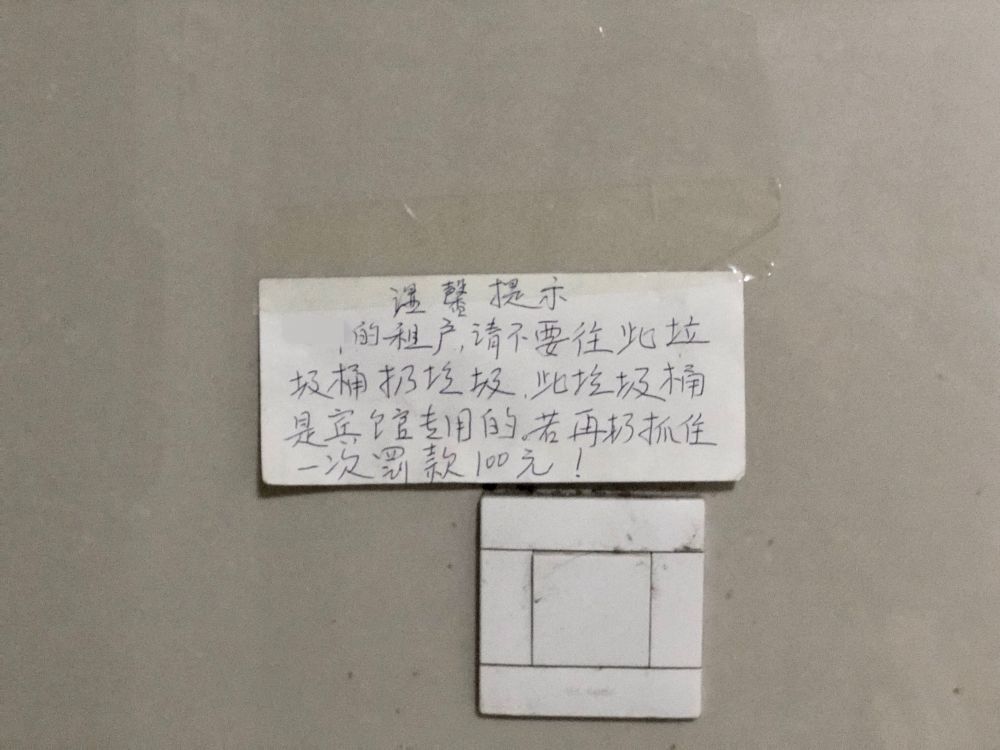 温馨提示
的租户,请不要往此垃
圾桶扔垃圾,此垃圾桶
是宾馆专用的。若再扔抓住
一次罚款100元!